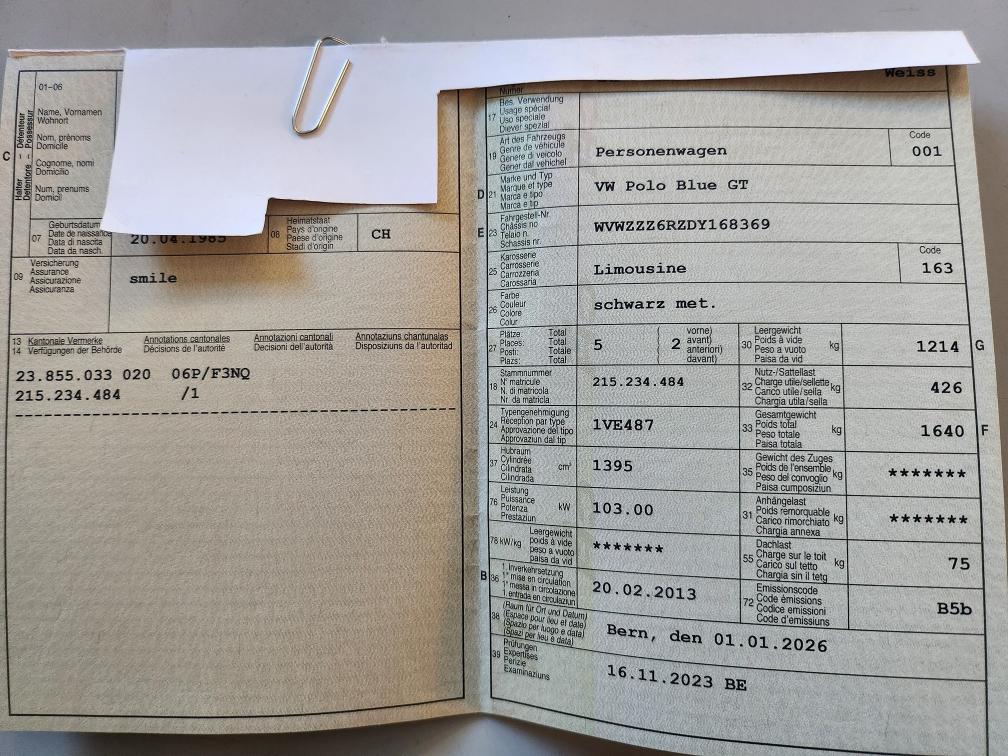 01–06
Name, Vornamen
Wohnort
Nom, prénoms
Domicile
Cognome, nomi
Domicilio
Num, prenums
Domicil
C
Halter Détenteur
Detentore Possessur
07
Geburtsdatum
Date de naissance
Data di nascita
Data da nasch.
20.04.1985
08
Heimatstaat
Pays d'origine
Paese d'origine
Stadi d'origin
CH
09
Versicherung
Assurance
Assicurazione
Assicuranza
smile
13 Kantonale Vermerke Annotations cantonales Annotazioni cantonali Annotaziuns chantunalas
14 Verfügungen der Behörde Décisions de l'autorité Decisioni dell'autorità Disposiziuns da l'autoritad
23.855.033 020 06P/F3NQ
215.234.484 /1
Weiss
Numer
17
Bes. Verwendung
Usage spécial
Uso speciale
Diever spezial
19
Art des Fahrzeugs
Genre de véhicule
Genere di veicolo
Gener dal vehichel
Personenwagen
Code
001
D 21
Marke und Typ
Marque et type
Marca e tipo
Marca e tip
VW Polo Blue GT
E 23
Fahrgestell-Nr.
Châssis no
Telaio n.
Schassis nr.
WVWZZZ6RZDY168369
25
Karosserie
Carrosserie
Carrozzeria
Carossaria
Limousine
Code
163
26
Farbe
Couleur
Colore
Colur
schwarz met.
27
Plätze: Total
Places: Total
Posti: Totale
Plazs: Total
5
2
vorne)
avant)
anteriori)
davant)
30
Leergewicht
Poids à vide
Peso a vuoto
Paisa da vid
kg
1214
G
18
Stammnummer
N° matricule
N. di matricola
Nr. da matricla
215.234.484
32
Nutz-/Sattellast
Charge utile/sellette
Carico utile/sella
Chargia utila/sella
kg
426
24
Typengenehmigung
Réception par type
Approvazione del tipo
Approvaziun dal tip
1VE487
33
Gesamtgewicht
Poids total
Peso totale
Paisa totala
kg
1640
F
37
Hubraum
Cylindrée
Cilindrata
Cilindrada
cm³
1395
35
Gewicht des Zuges
Poids de l'ensemble
Peso del convoglio
Paisa cumposiziun
kg
*******
76
Leistung
Puissance
Potenza
Prestaziun
kW
103.00
31
Anhängelast
Poids remorquable
Carico rimorchiato
Chargia annexa
kg
*******
78 kW/kg
Leergewicht
poids à vide
peso a vuoto
paisa da vid
*******
55
Dachlast
Charge sur le toit
Carico sul tetto
Chargia sin il tetg
kg
75
B 36
1. Inverkehrsetzung
1re mise en circulation
1a messa in circolazione
1. entrada en circulaziun
20.02.2013
72
Emissionscode
Code émissions
Codice emissioni
Code d'emissiuns
B5b
38
(Raum für Ort und Datum)
(Espace pour lieu et date)
(Spazio per luogo e data)
(Spazi per lieu e data)
Bern, den 01.01.2026
39
Prüfungen
Expertises
Perizie
Examinaziuns
16.11.2023 BE